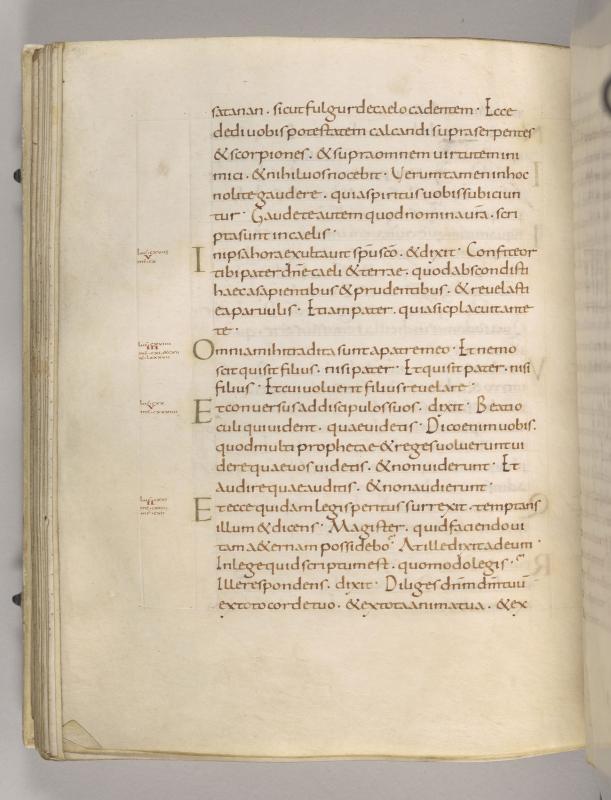 satanan . sicut fulgur decaelo cadentem · Ecce
dedi uobis potestatem calcandi supra serpentes
& scorpiones . & supra omnem uirtutem ini
mici . & nihil uos nocebit · Verumtamen in hoc
nolite gaudere . quia spiritus uobis subiciun
tur · Gaudete autem quod nomina ur̄a . scri
pta sunt in caelis ·
In ipsa hora exultauit sp̄u sc̄o . & dixit · Confiteor
tibi pater dn̄e caeli & terrae . quod abscondisti
haec a sapientibus & prudentibus . & reuelasti
ea paruulis · Etiam pater . quia sic placuit ante
te ·
Omnia mihi tradita sunt a patre meo · Et nemo
scit qui sit filius . nisi pater · Et qui sit pater . nisi
filius · Et cui uoluerit filius reuelare ·
Et conuersus ad discipulos suos . dixit · Beati o
culi qui uident . quae uidetis · Dico enim uobis .
quod multi prophetae & reges uoluerunt ui
dere quae uos uidetis . & non uiderunt · Et
audire quae auditis . & non audierunt ·
Et ecce quidam legis peritus surrexit . temptans
illum & dicens · Magister . quid faciendo ui
tam a&ernam possidebo · At ille dixit ad eum ·
In lege quid scriptum est . quomodo legis ·
Ille respondens . dixit · Diliges dn̄m dm̄ tuū
ex toto corde tuo . & ex tota anima tua . & ex